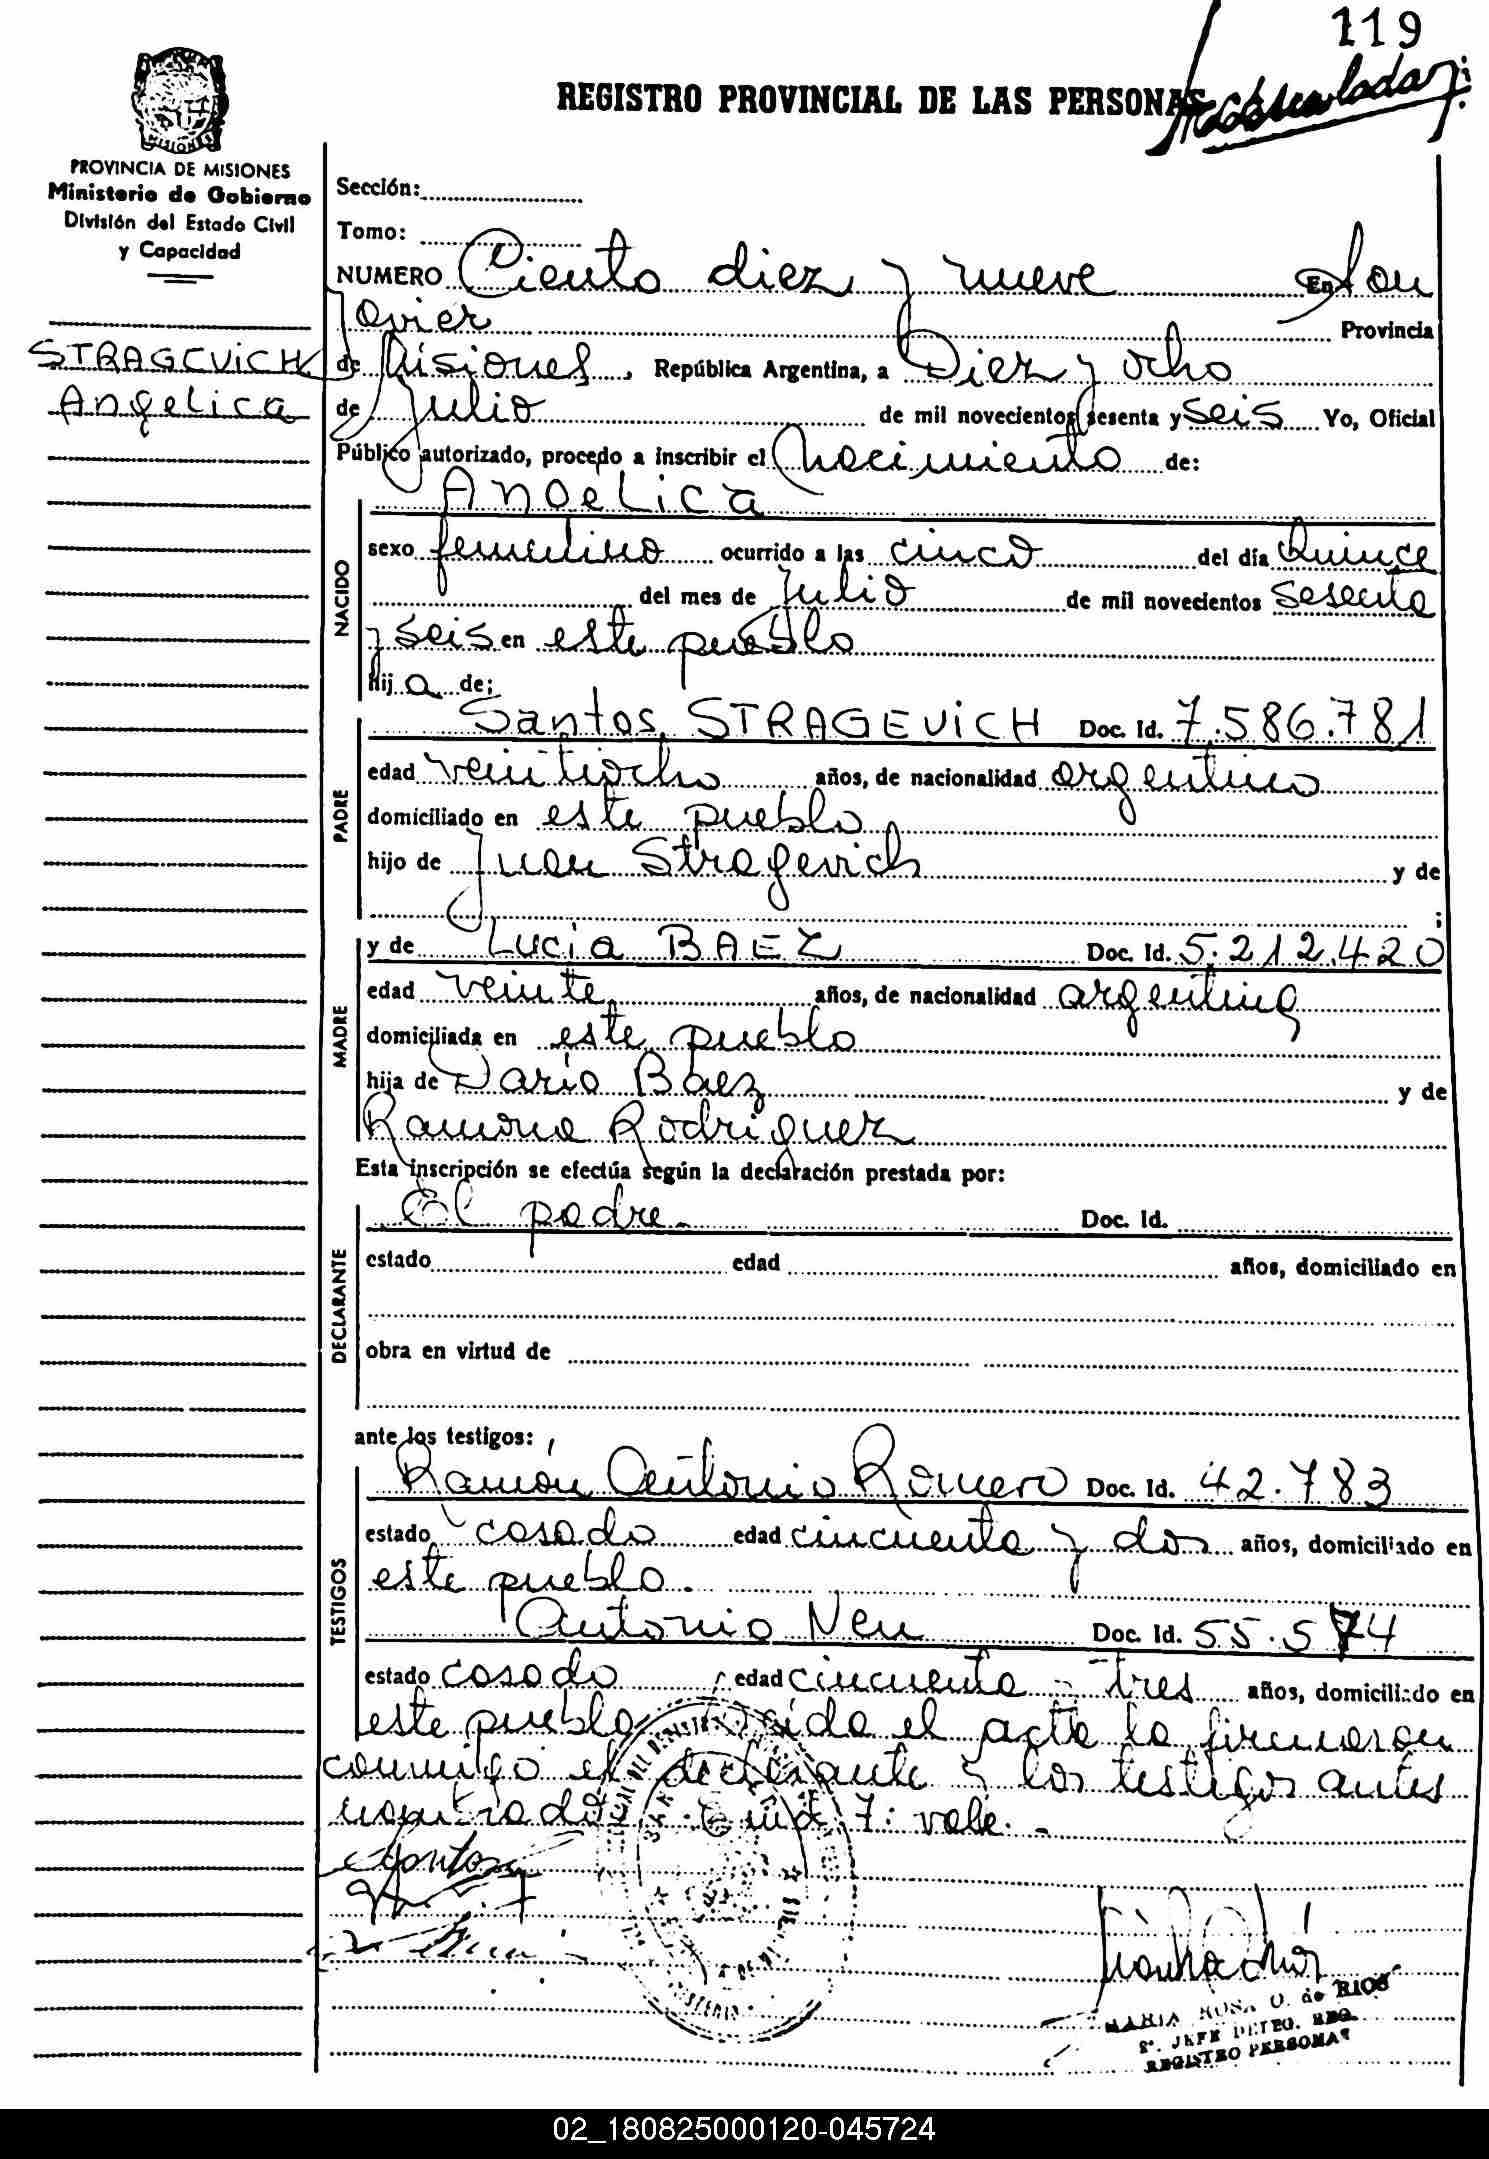 119
REGISTRO PROVINCIAL DE LAS PERSONAS
MISIONES
PROVINCIA DE MISIONES
Ministerio de Gobierno
División del Estado Civil
y Capacidad
STRAGEVICH
Angelica
Sección:
Tomo:
NUMERO Ciento diez y nueve En San
Javier Provincia
de Misiones, República Argentina, a Diez y ocho
de Julio de mil novecientos sesenta y seis Yo, Oficial
Público autorizado, procedo a inscribir el Nacimiento de:
Angélica
NACIDO
sexo femenino ocurrido a las cinco del día Quince
del mes de Julio de mil novecientos sesenta
y seis en este pueblo
hija de;
PADRE
Santos STRAGEVICH Doc. Id. 7.586.781
edad veintiocho años, de nacionalidad argentino
domiciliado en este pueblo
hijo de Juan Stragevich y de
;
MADRE
y de Lucia BAEZ Doc. Id. 5.212.420
edad veinte años, de nacionalidad argentina
domiciliada en este pueblo
hija de Darío Baez y de
Ramona Rodriguez
Esta inscripción se efectúa según la declaración prestada por:
DECLARANTE
El padre. Doc. Id.
estado edad años, domiciliado en
obra en virtud de
ante los testigos:
TESTIGOS
Ramón Antonio Romero Doc. Id. 42.783
estado casado edad cincuenta y dos años, domiciliado en
este pueblo.
Antonio Neu Doc. Id. 55.574
estado casado edad cincuenta - tres años, domiciliado en
este pueblo leída el acta la firmaron
conmigo el declarante y los testigos antes
nombrados. Emd 7: vale.-
MARIA ROSA O. de RIOS
2°. JEFE DELEG. REG.
REGISTRO PERSONAS
02_180825000120-045724